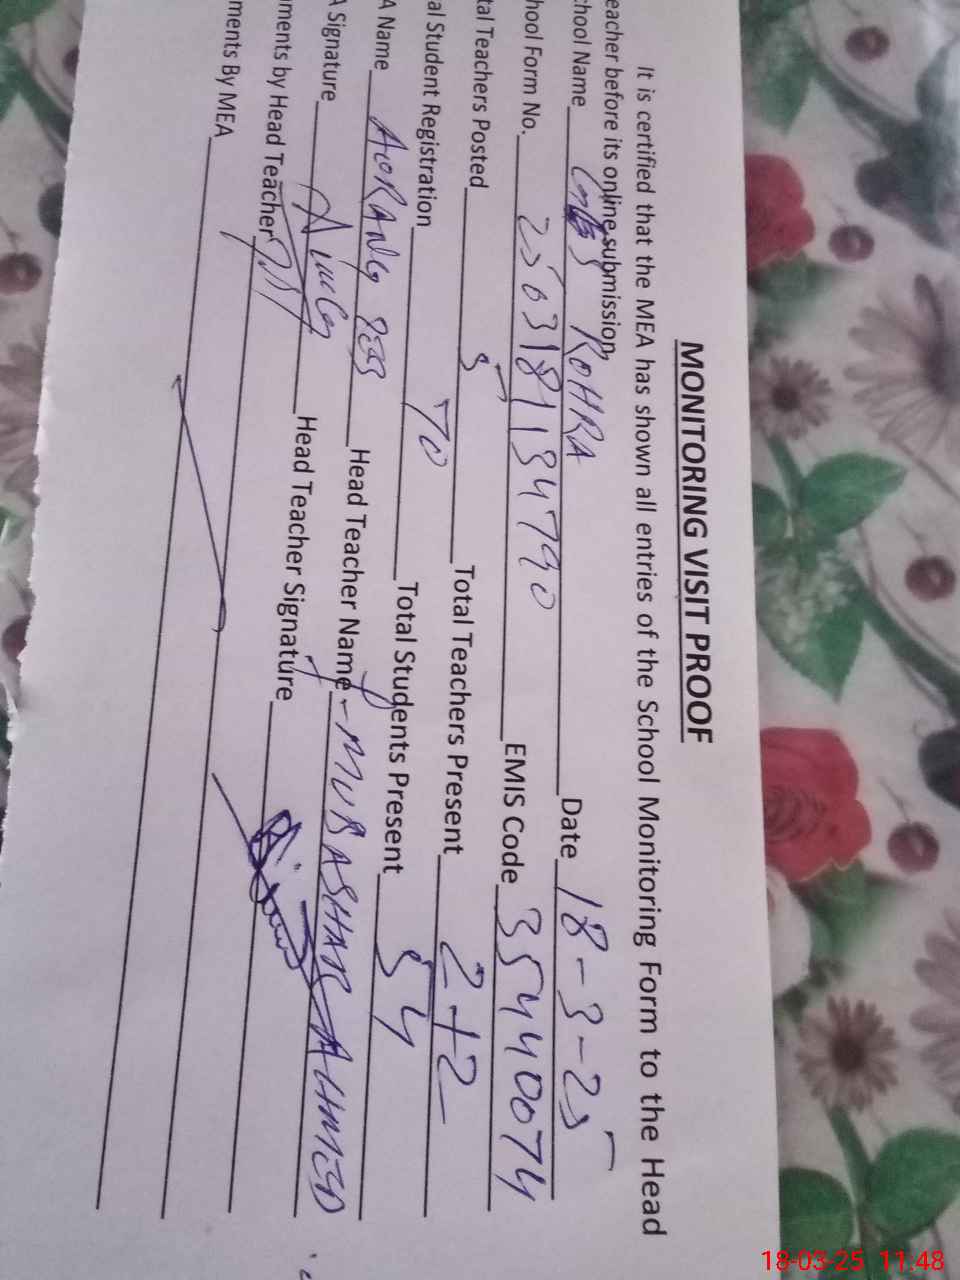 MONITORING VISIT PROOF
It is certified that the MEA has shown all entries of the School Monitoring Form to the Head
eacher before its online submission.
chool Name ROHRA Date 18-3-25
hool Form No. 250318134790 EMIS Code 35440074
tal Teachers Posted 5 Total Teachers Present 2+2
al Student Registration 70 Total Students Present 54
A Name AURANG Head Teacher Name MUBASHAR AHMED
A Signature Head Teacher Signature
ments by Head Teacher
ments By MEA
18-03-25 11:48